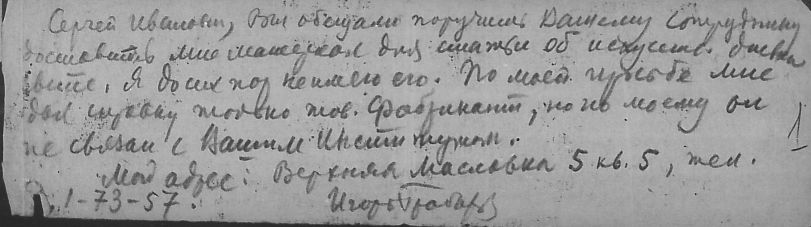 Сергей Иванович, Вы обещали поручить Вашему сотруднику
доставить мне материал для статьи об искусств.
Я до сих пор не имею его. По моей просьбе мне
дал справку только тов. Фабрикант, но по моему он
не связан с Вашим Институтом.
Мой адрес: Верхняя Масловка 5 кв. 5, тел.
1-73-57. Игорь Грабарь
1